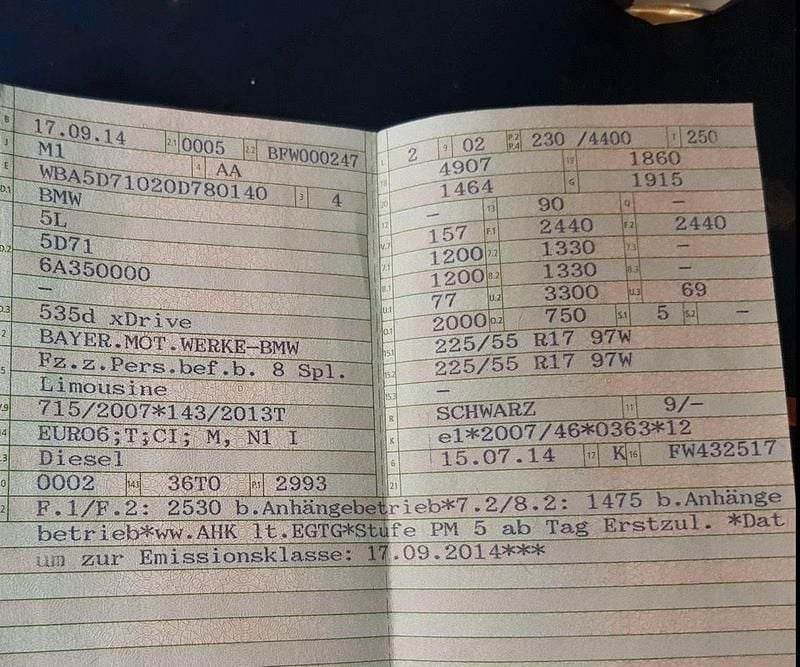 B 17.09.14 2.1 0005 2.2 BFW000247
J M1 4 AA
E WBA5D71020D780140 3 4
D.1 BMW
5L
D.2 5D71
6A350000
—
D.3 535d xDrive
2 BAYER.MOT.WERKE-BMW
5 Fz.z.Pers.bef.b. 8 Spl.
Limousine
V.9 715/2007*143/2013T
14 EURO6;T;CI; M, N1 I
P.3 Diesel
10 0002 14.1 36T0 P.1 2993
L 2 9 02 P.2 P.4 230 /4400 T 250
18 4907 19 1860
20 1464 G 1915
12 — 13 90 Q —
V.7 157 F.1 2440 F.2 2440
7.1 1200 7.2 1330 7.3 —
8.1 1200 8.2 1330 8.3 —
U.1 77 U.2 3300 U.3 69
O.1 2000 O.2 750 S.1 5 S.2 —
15.1 225/55 R17 97W
15.2 225/55 R17 97W
15.3 —
R SCHWARZ 11 9/—
K e1*2007/46*0363*12
6 15.07.14 17 K 16 FW432517
21
22 F.1/F.2: 2530 b.Anhängebetrieb*7.2/8.2: 1475 b.Anhänge
betrieb*ww.AHK lt.EGTG*Stufe PM 5 ab Tag Erstzul. *Dat
um zur Emissionsklasse: 17.09.2014***